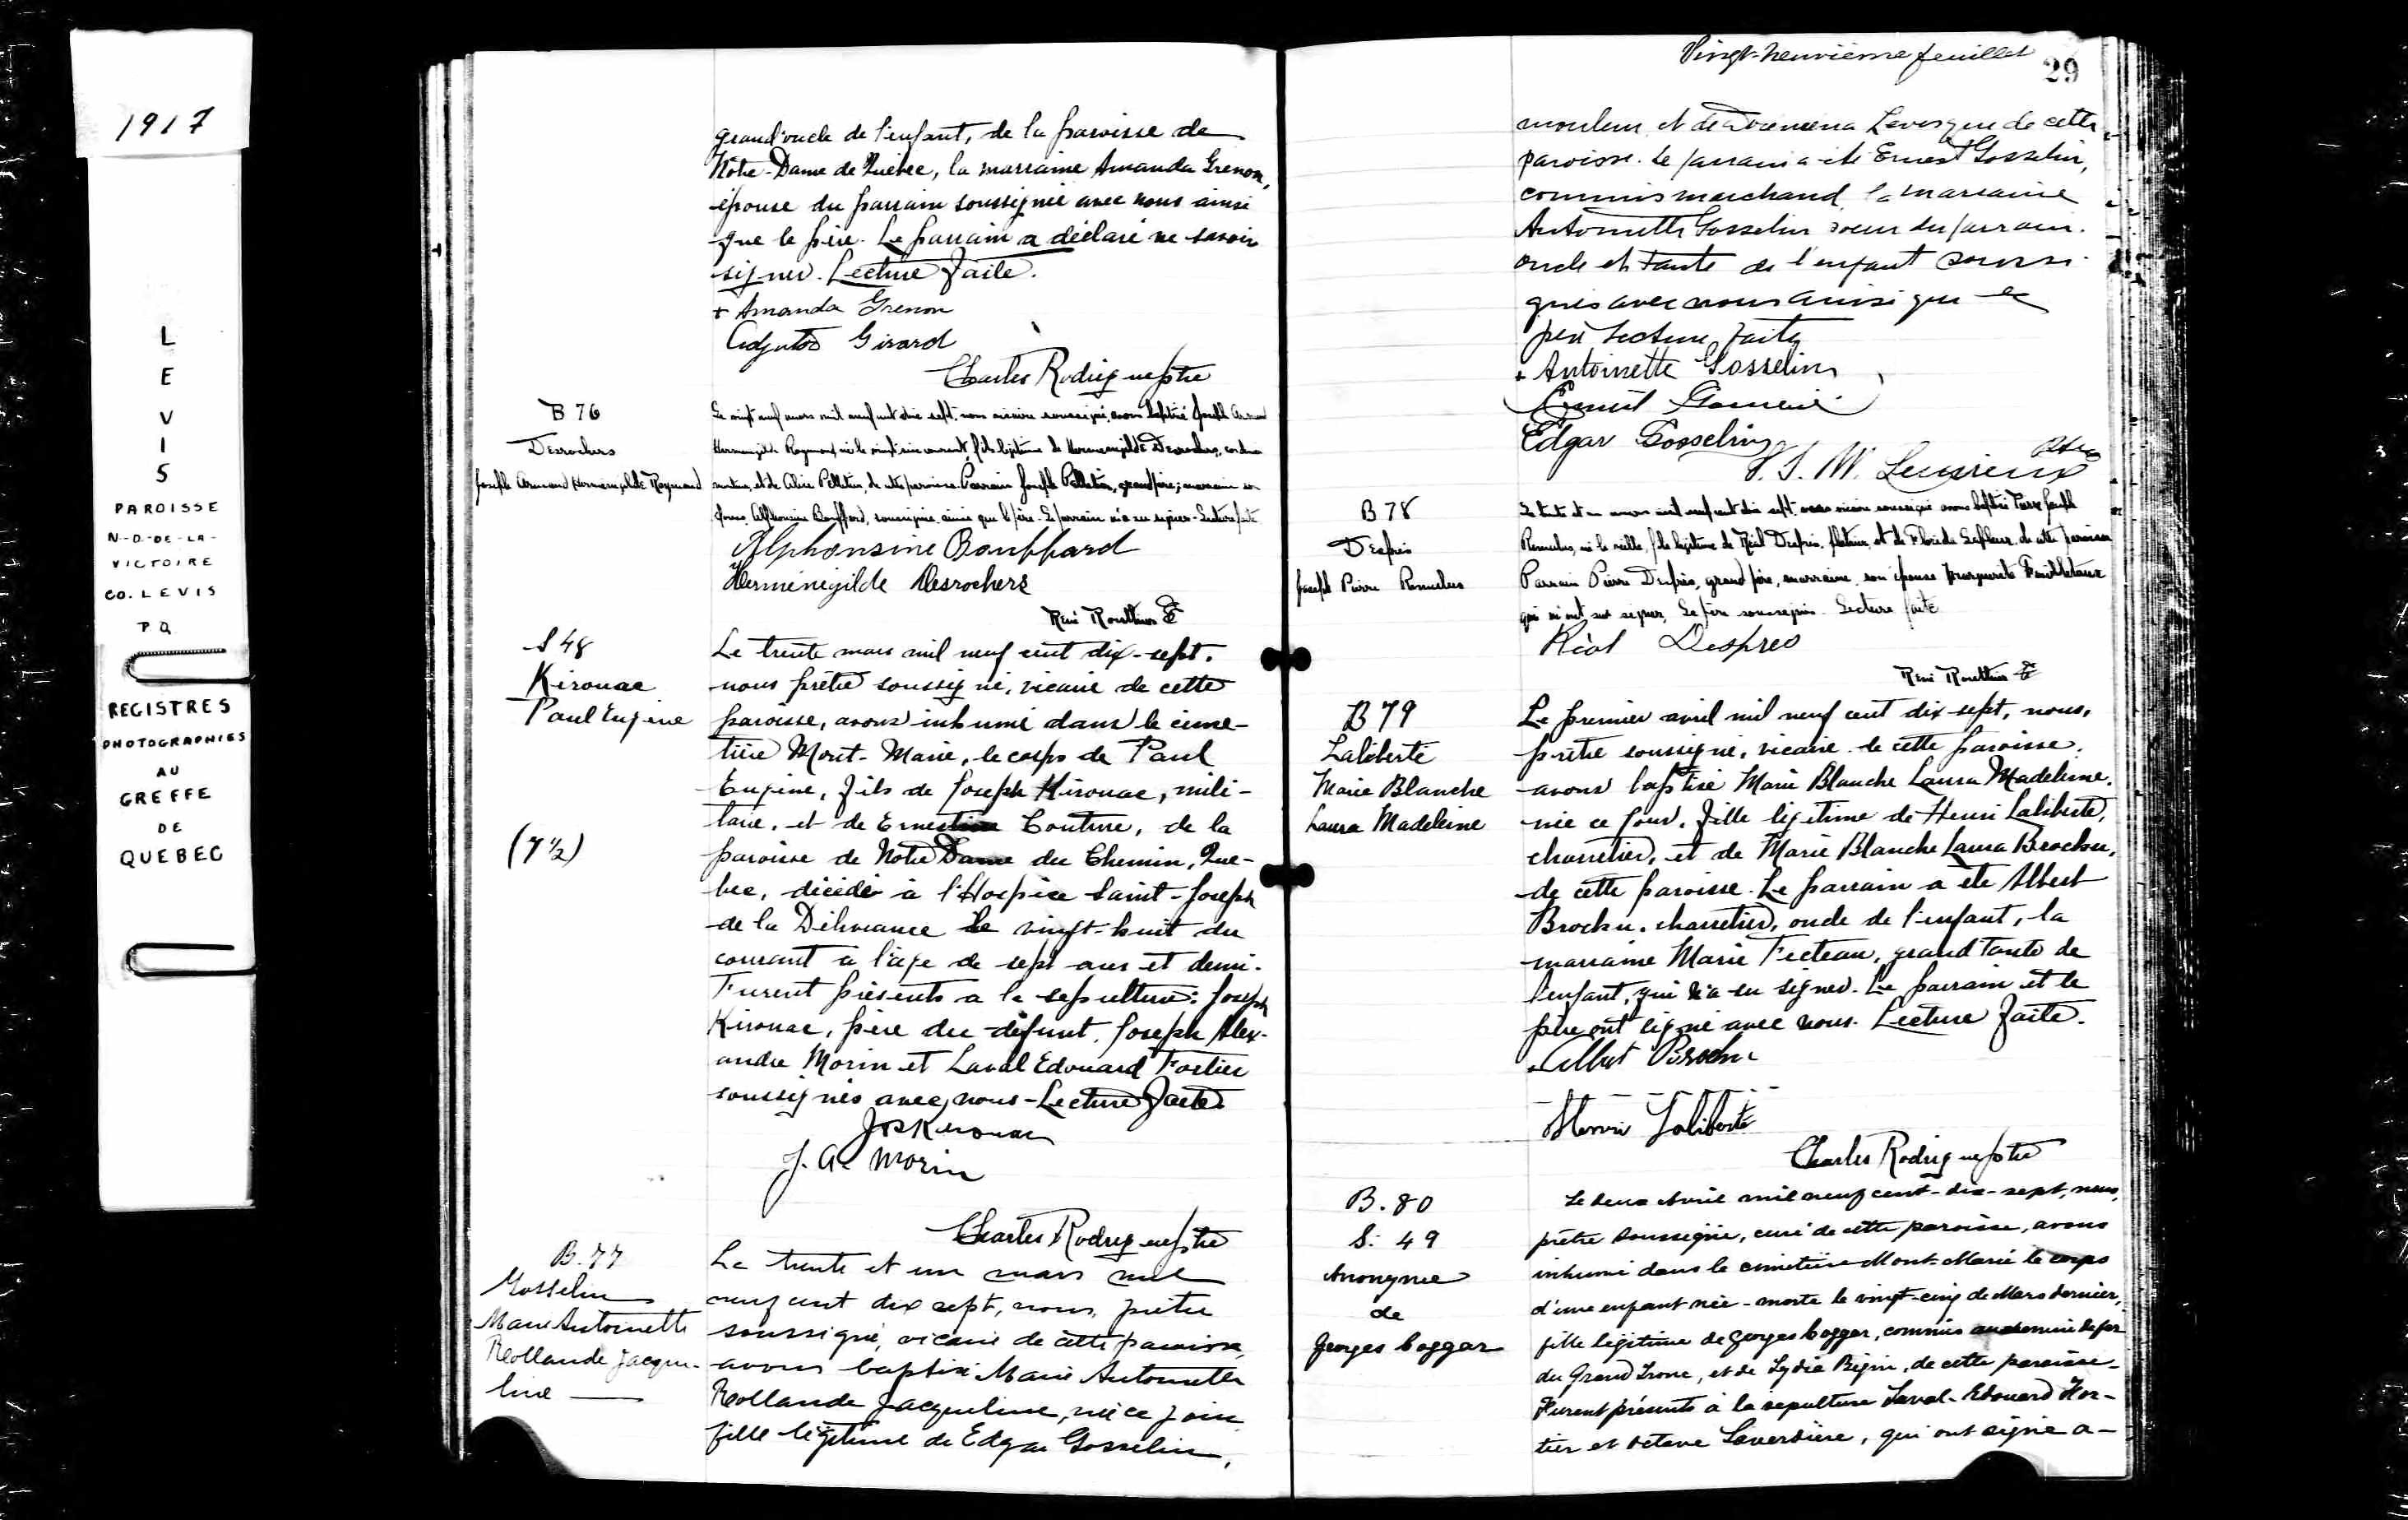 1917
L
E
V
I
S
PAROISSE
N-D-DE-LA-
VICTOIRE
CO. LEVIS
P Q
REGISTRES
PHOTOGRAPHIES
AU
GREFFE
DE
QUEBEC
grand'oncle de l'enfant, de la paroisse de
Notre-Dame de Québec, la marraine Amanda Grenon,
épouse du parrain soussignée avec nous ainsi
que le père. Le parrain a déclaré ne savoir
signer. Lecture faite.
+ Amanda Grenon
Adjutor Girard
Charles Rodrigue ptre
B 76
Desrochers
Joseph Armand Herménégilde Raymond
Le vingt neuf mars mil neuf cent dix sept, nous vicaire soussigné, avons baptisé Joseph Armand
Herménégilde Raymond né le courant, fils légitime de Herménégilde Desrochers,
et de Alice Pelletier, de cette paroisse. Parrain Joseph Pelletier, grand père; marraine son
épouse, Alphonsine Bouffard, soussignée ainsi que le père. Le parrain n'a su signer. Lecture faite
Alphonsine Bouffard
Herménégilde Desrochers
René
S 48
Kirouac
Paul Eugène
(7 ½)
Le trente mars mil neuf cent dix-sept.
nous prêtre soussigné, vicaire de cette
paroisse, avons inhumé dans le cime-
tière Mont-Marie, le corps de Paul
Eugène, fils de Joseph Kirouac, mili-
taire, et de Ernestine Couture, de la
paroisse de Notre Dame du Chemin, Qué-
bec, décédé à l'Hospice Saint-Joseph
de la Délivrance le vingt-huit du
courant à l'âge de sept ans et demi.
Furent présents à la sépulture: Joseph
Kirouac, père du défunt, Joseph Alex-
andre Morin et Laval Edouard Fortier
soussignés avec nous - Lecture faite.
Jos Kirouac
J. A. Morin
Charles Rodrigue ptre
B. 77
Gosselin
Marie Antoinette
Rollande Jacque-
line
Le trente et un mars mil
neuf cent dix sept, nous, prêtre
soussigné, vicaire de cette paroisse,
avons baptisé Marie Antoinette
Rollande Jacqueline, née ce jour
fille légitime de Edgar Gosselin,
Vingt-neuvième feuillet
29
mouleur, et de Lévesque de cette
paroisse. Le parrain a été Ernest Gosselin,
commis marchand, la marraine
Antoinette Gosselin soeur du parrain.
oncle et tante de l'enfant soussi-
gnés avec nous ainsi que le
père Lecture faite
+ Antoinette Gosselin
Edgar Gosselin
Ptre
B 78
Desprès
Joseph Pierre Romulus
Le trente et un mars mil neuf cent dix sept, nous vicaire soussigné avons baptisé Pierre Joseph
Romulus, né la veille, fils légitime de Réal Desprès, et de Florida Lafleur, de cette paroisse
Parrain Pierre Desprès, grand père, marraine, son épouse Marguerite
qui n'ont su signer, Le père soussigné. Lecture faite
Réal Desprès
René
B 79
Laliberté
Marie Blanche
Laura Madeleine
Le premier avril mil neuf cent dix-sept, nous,
prêtre soussigné, vicaire de cette paroisse,
avons baptisé Marie Blanche Laura Madeleine,
née ce jour, fille légitime de Henri Laliberté,
charretier, et de Marie Blanche Laura Brochu,
de cette paroisse. Le parrain a été Albert
Brochu, charretier, oncle de l'enfant, la
marraine Marie Fecteau, grand'tante de
l'enfant, qui n'a su signer. Le parrain et le
père ont signé avec nous. Lecture faite.
Albert Brochu
Henri Laliberté
Charles Rodrigue ptre
B. 80
S. 49
Anonyme
de
Georges Coggar
Le deux Avril mil neuf cent-dix-sept, nous,
prêtre soussigné, curé de cette paroisse, avons
inhumé dans le cimetière Mont-Marie le corps
d'une enfant née-morte le vingt-cinq de Mars dernier,
fille légitime de Georges Coggar, commis au chemin de fer
du Grand Tronc, et de Lydia Bégin, de cette paroisse.
Furent présents à la sépulture Laval-Edouard For-
tier et Octave Laverdière, qui ont signé a-